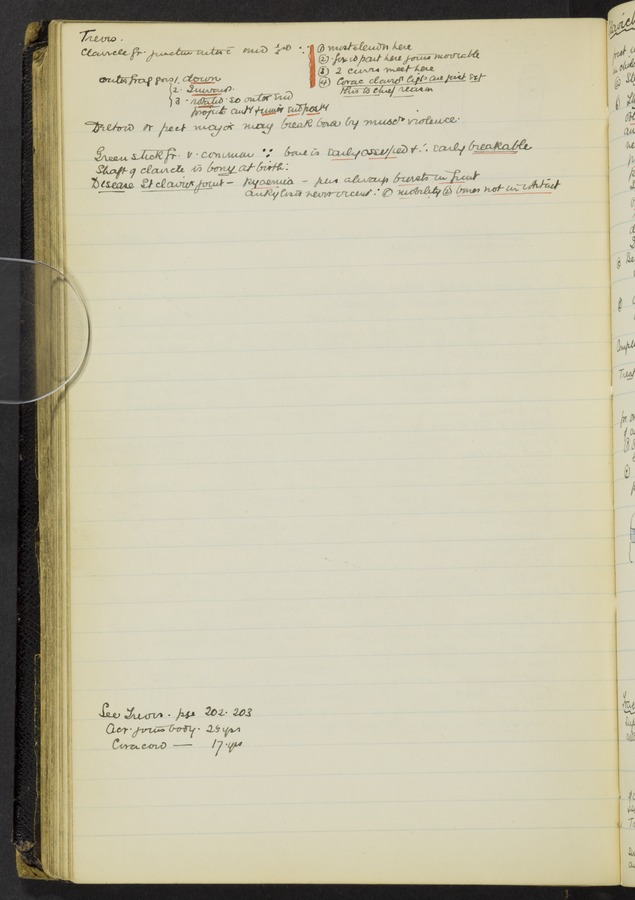 Treves.
Clavicle fr. junction outer & mid 1/3rd ∵ ① most slender here
② fixed part here joins moveable
③ 2 curves meet here
④ Corac clavicr ligts are just ext
this is chief reason
outer frag goes 1. down
2. Inwards
3. rotated so outer end
projects antly & inner end postly
Deltoid or pect major may break bone by muscr violence.
Green stick fr. v. common ∵ bone is early ossified & ∴ early breakable
Shaft of clavicle is bony at birth.
Disease St clavicr joint – Pyaemia – pus always bursts in front
ankylosis never occurs ∵ ① mobility ② bones not in contact
See Treves. pge 202. 203
Acr. joins body. 25 yrs
Coracoid — 17. yrs